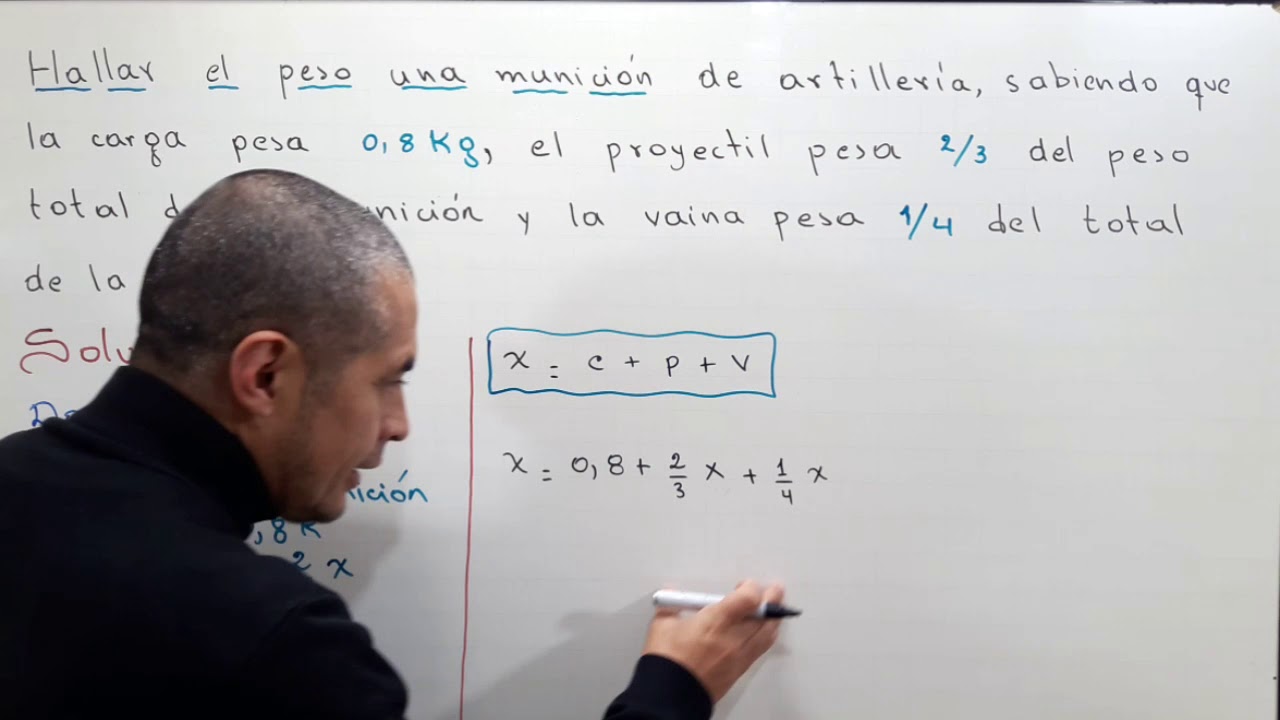 Hallar el peso una munición de artillería, sabiendo que
la carga pesa 0,8 Kg, el proyectil pesa 2/3 del peso
total y la vaina pesa 1/4 del total
de la
x = c + p + v
x = 0,8 + 2/3 x + 1/4 x
,8 K
2 x